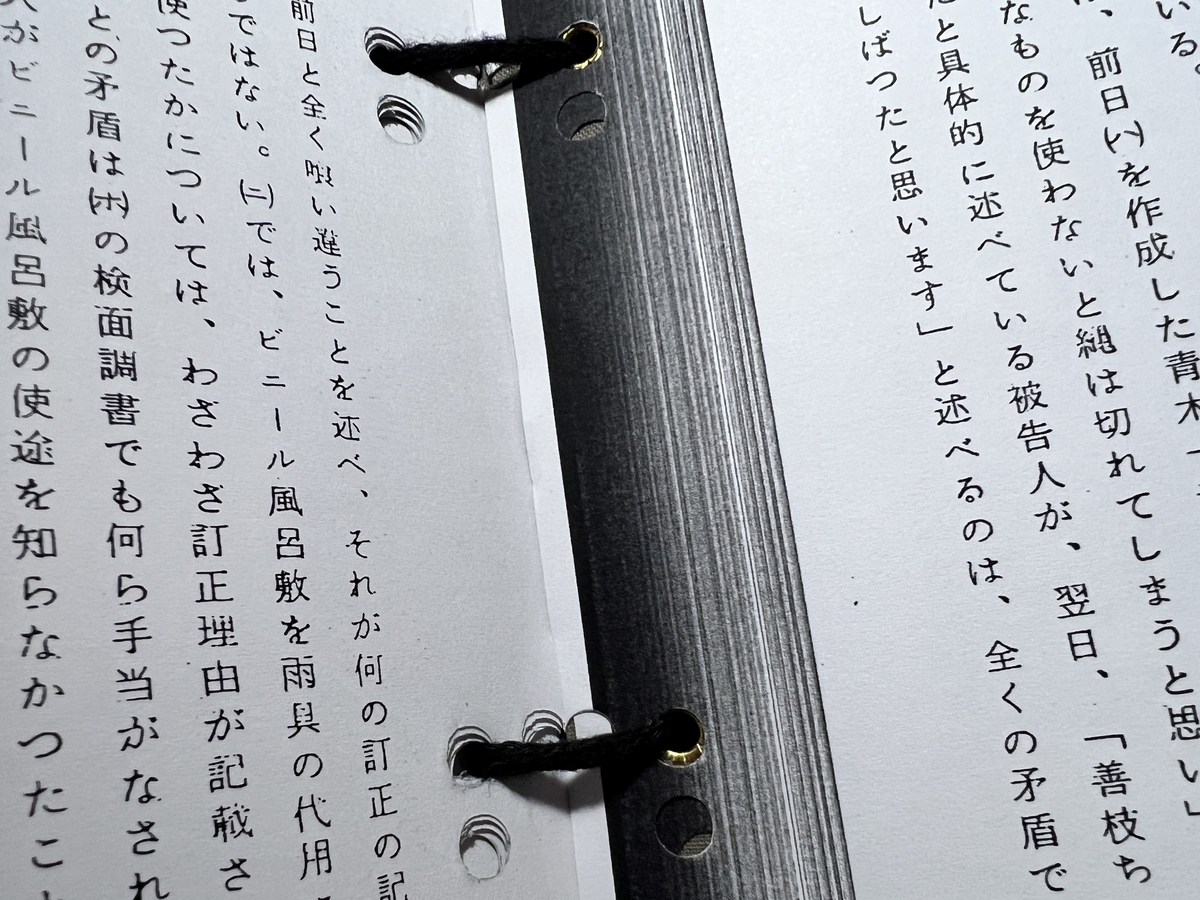 いる。
、前日㈥を作成した青木一
なものを使わないと縄は切れてしまうと思い」
と具体的に述べている被告人が、翌日、「善枝ち
しばつたと思います」と述べるのは、全くの矛盾で
前日と全く喰い違うことを述べ、それが何の訂正の記
ではない。㈡では、ビニール風呂敷を雨具の代用
使つたかについては、わざわざ訂正理由が記載さ
との矛盾は㈭の検面調書でも何ら手当がなされ
がビニール風呂敷の使途を知らなかつたこと